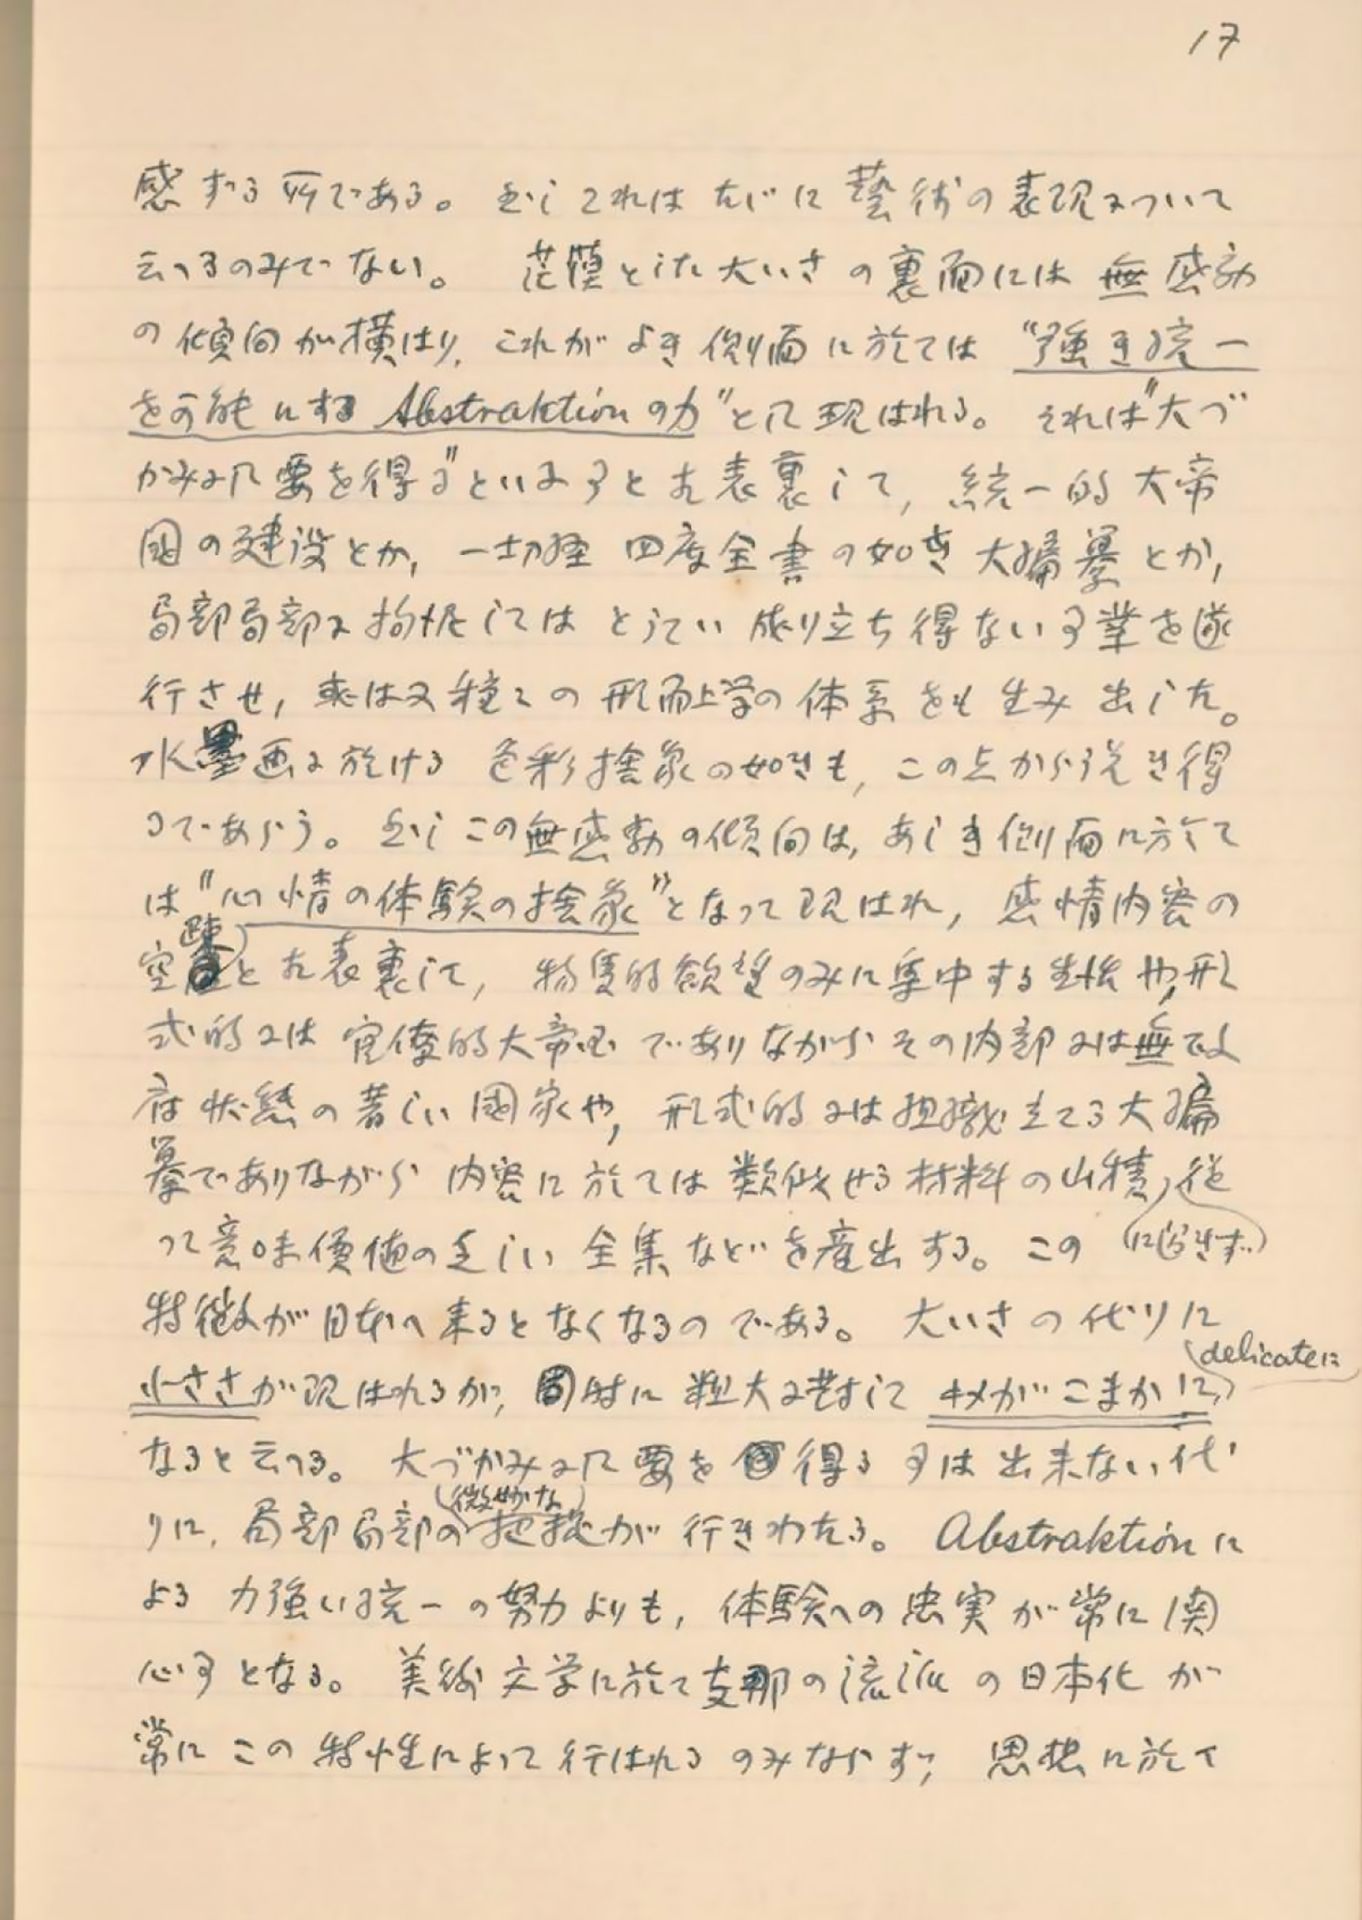 17
感ずる所である。然しこれはたゞに藝術の表現について
云へるのみでない。茫漠とした大いさの裏面には無感動
の傾向が横はり、これがよき側面に於ては“強き統一
を可能にする Abstraktion の力”として現はれる。それは“大づ
かみにして要を得る”といふことと相表裏して、統一的大帝
國の建設とか、一切経 四庫全書の如き大編纂とか、
局部局部に拘泥してはとうてい成り立ち得ない事業を遂
行させ、或は又種々の形而上学の体系をも生み出した。
水墨画に於ける色彩捨象の如きも、この点から説き得
るであらう。然しこの無感動の傾向は、あしき側面に於て
は“心情の体験の捨象”となって現はれ、感情内容の
空疎と相表裏して、物質的欲望のみに集中する生活や、形
式的には官僚的大帝国でありながらその内部には無政
府状態の著しい國家や、形式的には組織立てる大編
纂でありながら内容に於ては類似せる材料の山積に過ぎず、従
って意味價値の乏しい全集などを産出する。この
特徴が日本へ来るとなくなるのである。大いさの代りに
小ささが現はれるが、同時に粗大に対してキメがこまかに、delicateに
なると云へる。大づかみにして要を得る事は出来ない代
りに、局部局部の微妙な把握が行きわたる。Abstraktion に
よる力強い統一の努力よりも、体験への忠実が常に関
心事となる。美術文学に於て支那の流派の日本化が
常にこの特性によって行はれるのみならず、思想に於て